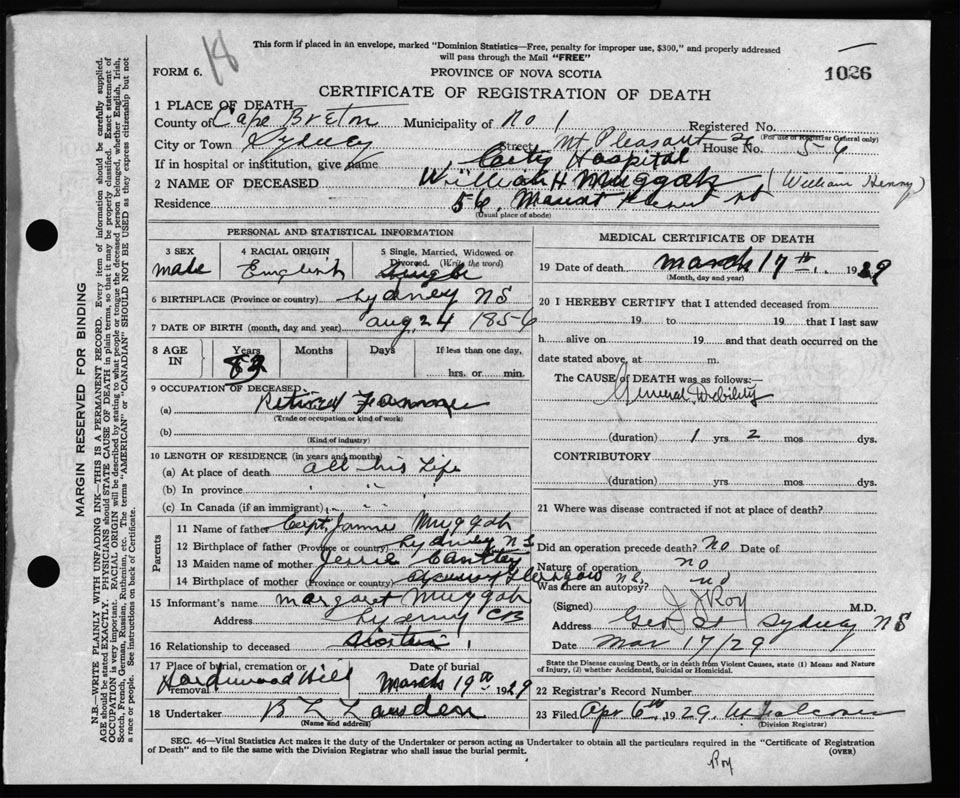 18
This form if placed in an envelope, marked "Dominion Statistics—Free, penalty for improper use, $300," and properly addressed
will pass through the Mail "FREE"
FORM 6.
PROVINCE OF NOVA SCOTIA
1026
CERTIFICATE OF REGISTRATION OF DEATH
1 PLACE OF DEATH
County of Cape Breton Municipality of No 1 Registered No.
(For use of Registrar General only)
City or Town Sydney Street Mt Pleasant St House No. 56
If in hospital or institution, give name City Hospital
2 NAME OF DECEASED William H Muggah (William Henry)
Residence 56 Mount Pleasant St
(Usual place of abode)
PERSONAL AND STATISTICAL INFORMATION
3 SEX male
4 RACIAL ORIGIN English
5 Single, Married, Widowed or Divorced. (Write the word) Single
6 BIRTHPLACE (Province or country) Sydney NS
7 DATE OF BIRTH (month, day and year) Aug 24 1856
8 AGE IN Years Months Days If less than one day, hrs. or min.
9 OCCUPATION OF DECEASED
(a) Retired
(Trade or occupation or kind of work)
(b)
(Kind of industry)
10 LENGTH OF RESIDENCE (in years and months)
(a) At place of death all his life
(b) In province " " "
(c) In Canada (if an immigrant) " "
Parents
11 Name of father Capt, James Muggah
12 Birthplace of father (Province or country) Sydney NS
13 Maiden name of mother Cantley
14 Birthplace of mother (Province or country) NS
15 Informant's name Margaret Muggah
Address Sydney CB
16 Relationship to deceased
17 Place of burial, cremation or removal Hardwood Hill
Date of burial March 19th 1929
18 Undertaker
(Name and address)
MEDICAL CERTIFICATE OF DEATH
19 Date of death March 17th 1929
(Month, day and year)
20 I HEREBY CERTIFY that I attended deceased from
19 to 19 that I last saw
h alive on 19 and that death occurred on the
date stated above, at m.
The CAUSE of DEATH was as follows:—
General Debility
(duration) 1 yrs 2 mos dys.
CONTRIBUTORY
(duration) yrs. mos. dys.
21 Where was disease contracted if not at place of death?
Did an operation precede death? No Date of
Nature of operation no
Was there an autopsy? no
(Signed) J J Roy M.D.
Address Geo St Sydney NS
Date Mar 17/29
State the Disease causing Death, or in death from Violent Causes, state (1) Means and Nature
of Injury, (2) whether Accidental, Suicidal or Homicidal.
22 Registrar's Record Number
23 Filed Apr 6th 1929.
(Division Registrar)
SEC. 46—Vital Statistics Act makes it the duty of the Undertaker or person acting as Undertaker to obtain all the particulars required in the "Certificate of Registration
of Death" and to file the same with the Division Registrar who shall issue the burial permit.
(OVER)
Roy
MARGIN RESERVED FOR BINDING
N.B.—WRITE PLAINLY WITH UNFADING INK—THIS IS A PERMANENT RECORD. Every item of information should be carefully supplied.
AGE should be stated EXACTLY. PHYSICIANS should STATE CAUSE OF DEATH in plain terms, so that it may be properly classified. Exact statement of
OCCUPATION is very important. RACIAL ORIGIN will be described by stating to what people or tongue the deceased person belonged, whether English, Irish,
Scotch, French, German, Russian, Ruthenian, etc. The terms "AMERICAN" or "CANADIAN" SHOULD NOT BE USED as they express citizenship but not
a race or people. See instructions on back of Certificate.